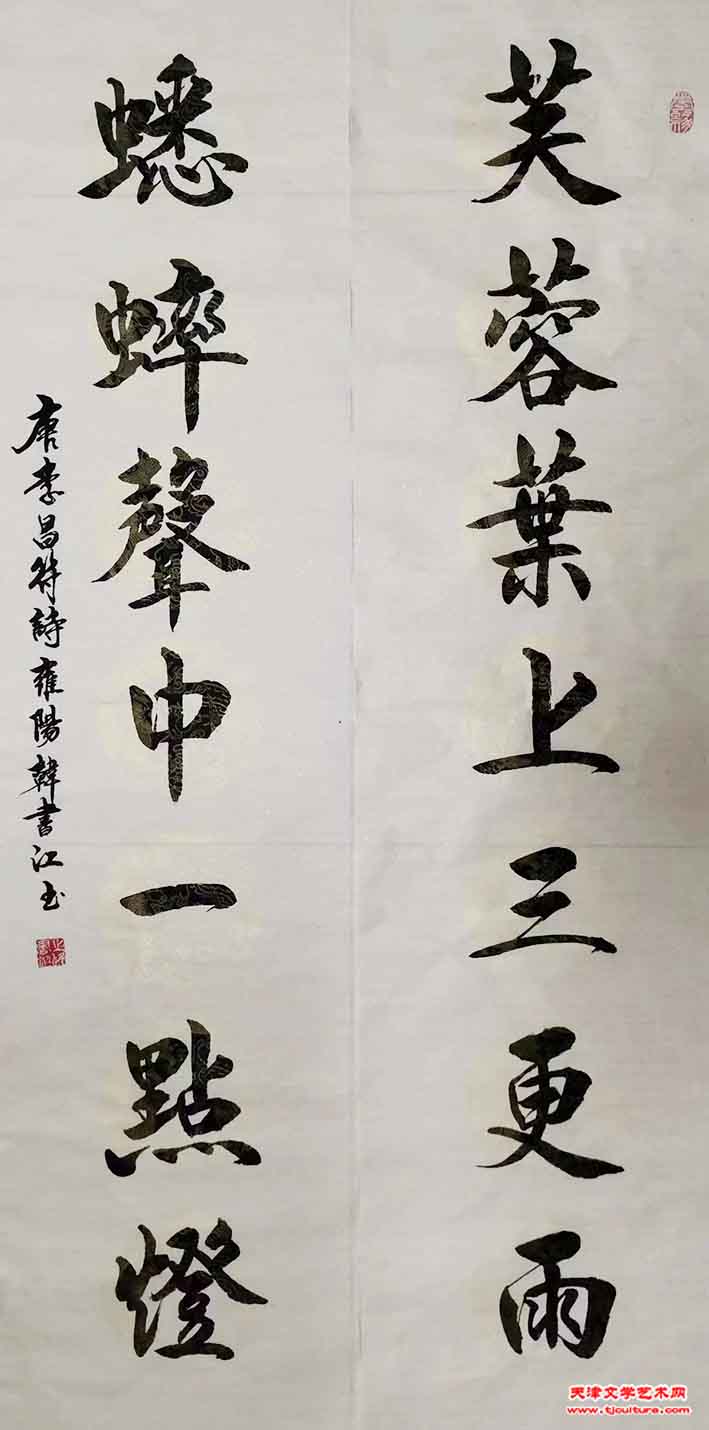 芙蓉葉上三更雨
蟋蟀聲中一點燈
唐李昌符詩雍陽韓書江书
天津文学艺术网
www.tjculture.com